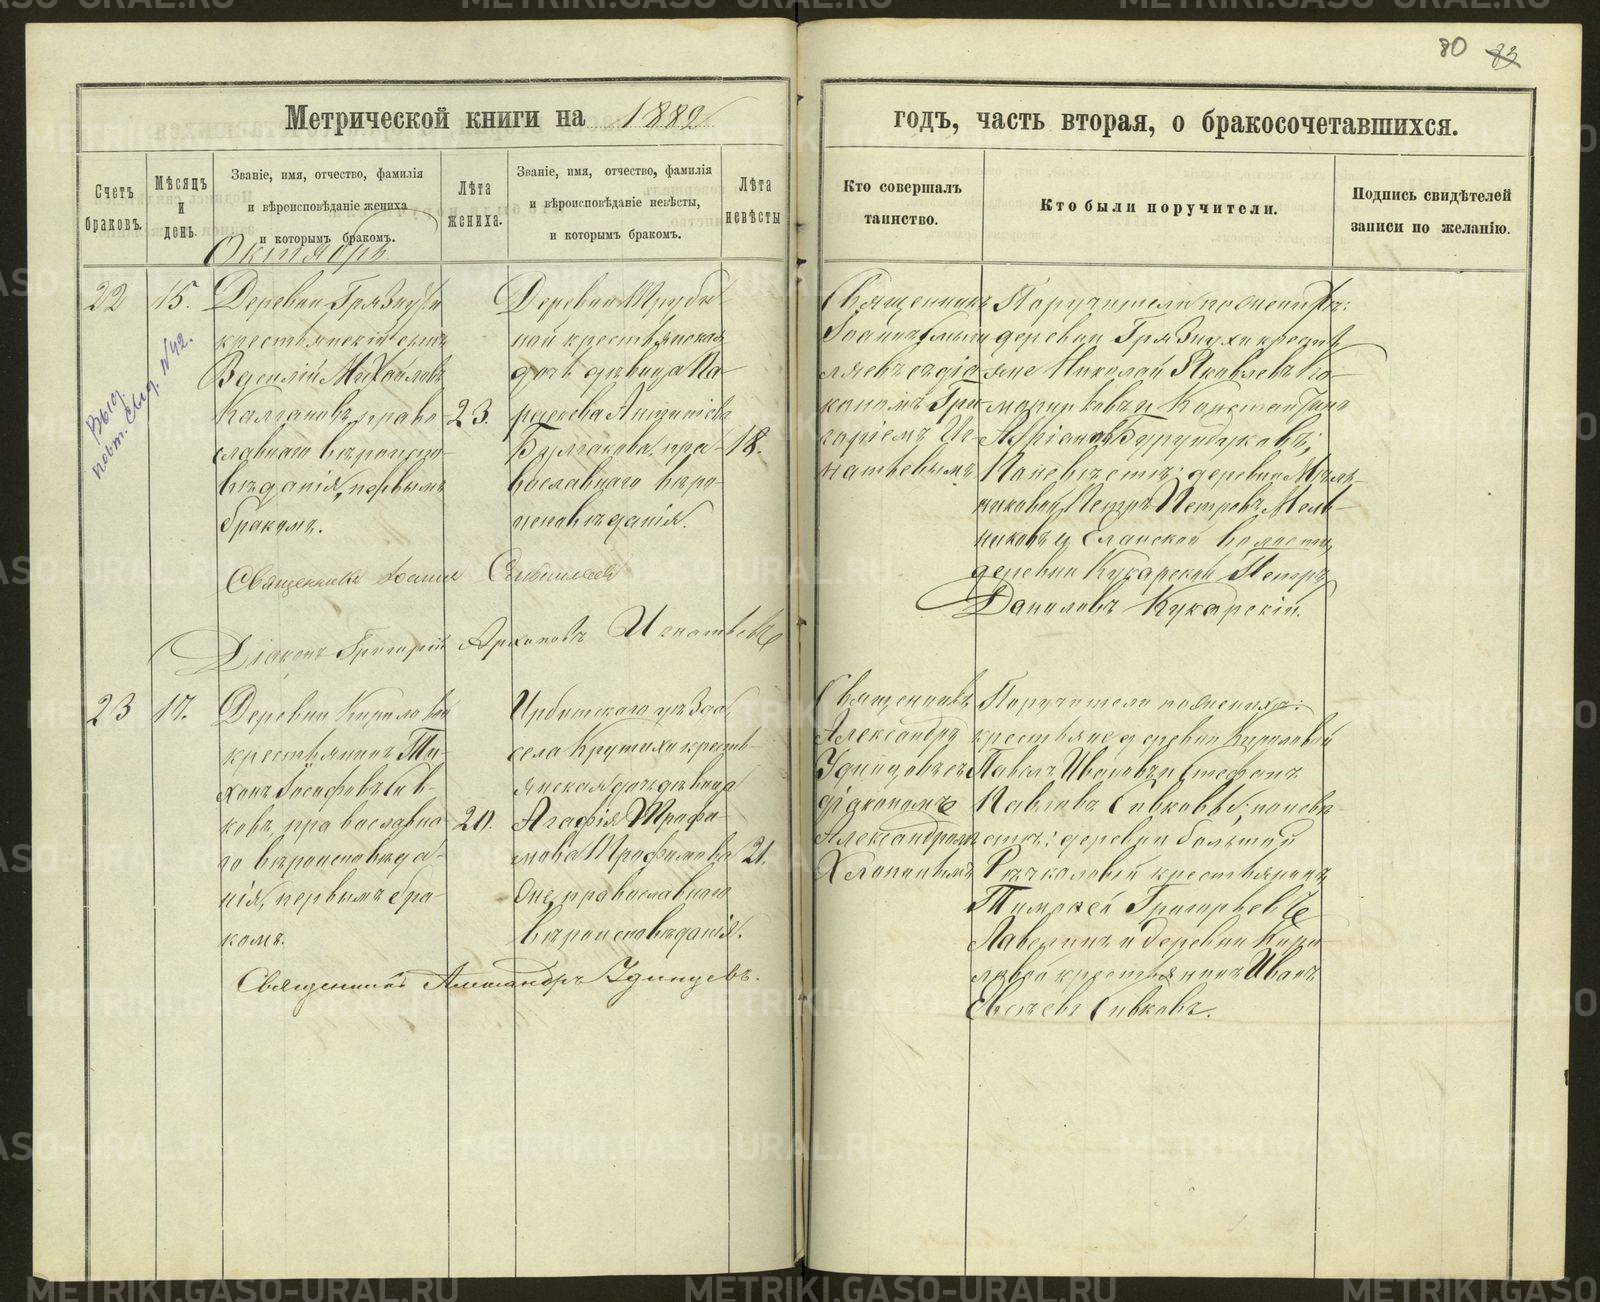 80 83
Метрической книги на 1882
годъ, часть вторая, о бракосочетавшихся.
Счетъ браковъ.
Мѣсяцъ и день.
Званіе, имя, отчество, фамилія
и вѣроисповѣданіе жениха
и которымъ бракомъ.
Лѣта жениха.
Званіе, имя, отчество, фамилія
и вѣроисповѣданіе невѣсты,
и которымъ бракомъ.
Лѣта невѣсты
Кто совершалъ
таинство.
Кто были поручители.
Подпись свидѣтелей
записи по желанію.
Октябрь
22
15.
Выд.
повт. свид. № 42.
Деревни Грязнухи
крестьянскій сынъ
Василій Михайловъ
Калгановъ, право
славнаго вѣроиспо-
вѣданія, первымъ
бракомъ.
23.
Деревни Трубн
ной крестьянская
дочь дѣвица Па-
раскева Антипова
Булгакова, пра-
вославнаго вѣро-
исповѣданія.
18.
Священникъ
Іоаннъ Смыш
ляевъ съ діа
кономъ Гри
горіемъ Иг-
натьевымъ
Поручители по женихѣ:
деревни Грязнухи кресть
яне Николай Яковлевъ По-
морцковъ и Константинъ
Адріановъ Бурундуковъ;
По невѣстѣ: деревни Мель-
никовой Петръ Петровъ Мель-
никовъ и Еланской волости
деревни Кукарской Петръ
Даниловъ Кукарскій.
Священникъ Іоаннъ Смышляевъ
Діаконъ Григорій Архиповъ Игнатьевъ
23
17.
Деревни Кириловой
крестьянинъ Ти-
хонъ Іосифовъ Сив-
ковъ, православна-
го вѣроисповѣда-
нія, первымъ бра-
комъ.
20.
Ирбитскаго уѣзда,
села Крутихи кресть-
янская дочь дѣвица
Агафія Трофи-
мова Трофимова
она, православнаго
вѣроисповѣданія.
21.
Священникъ
Александръ
Удинцовъ съ
діакономъ
Александромъ
Хлопинымъ
Поручители по женихѣ:
крестьяне деревни Кириловой
Павелъ Ивановъ и Стефанъ
Павловъ Сивковы; по невѣ-
стѣ: деревни Большой
Речкаловой крестьянинъ
Тимофей Григорьевъ
Лавелинъ и деревни Кири-
ловой крестьянинъ Иванъ
Евсѣевъ Сивковъ.
Священникъ Александръ Удинцевъ.
METRIKI.GASO-URAL.RU